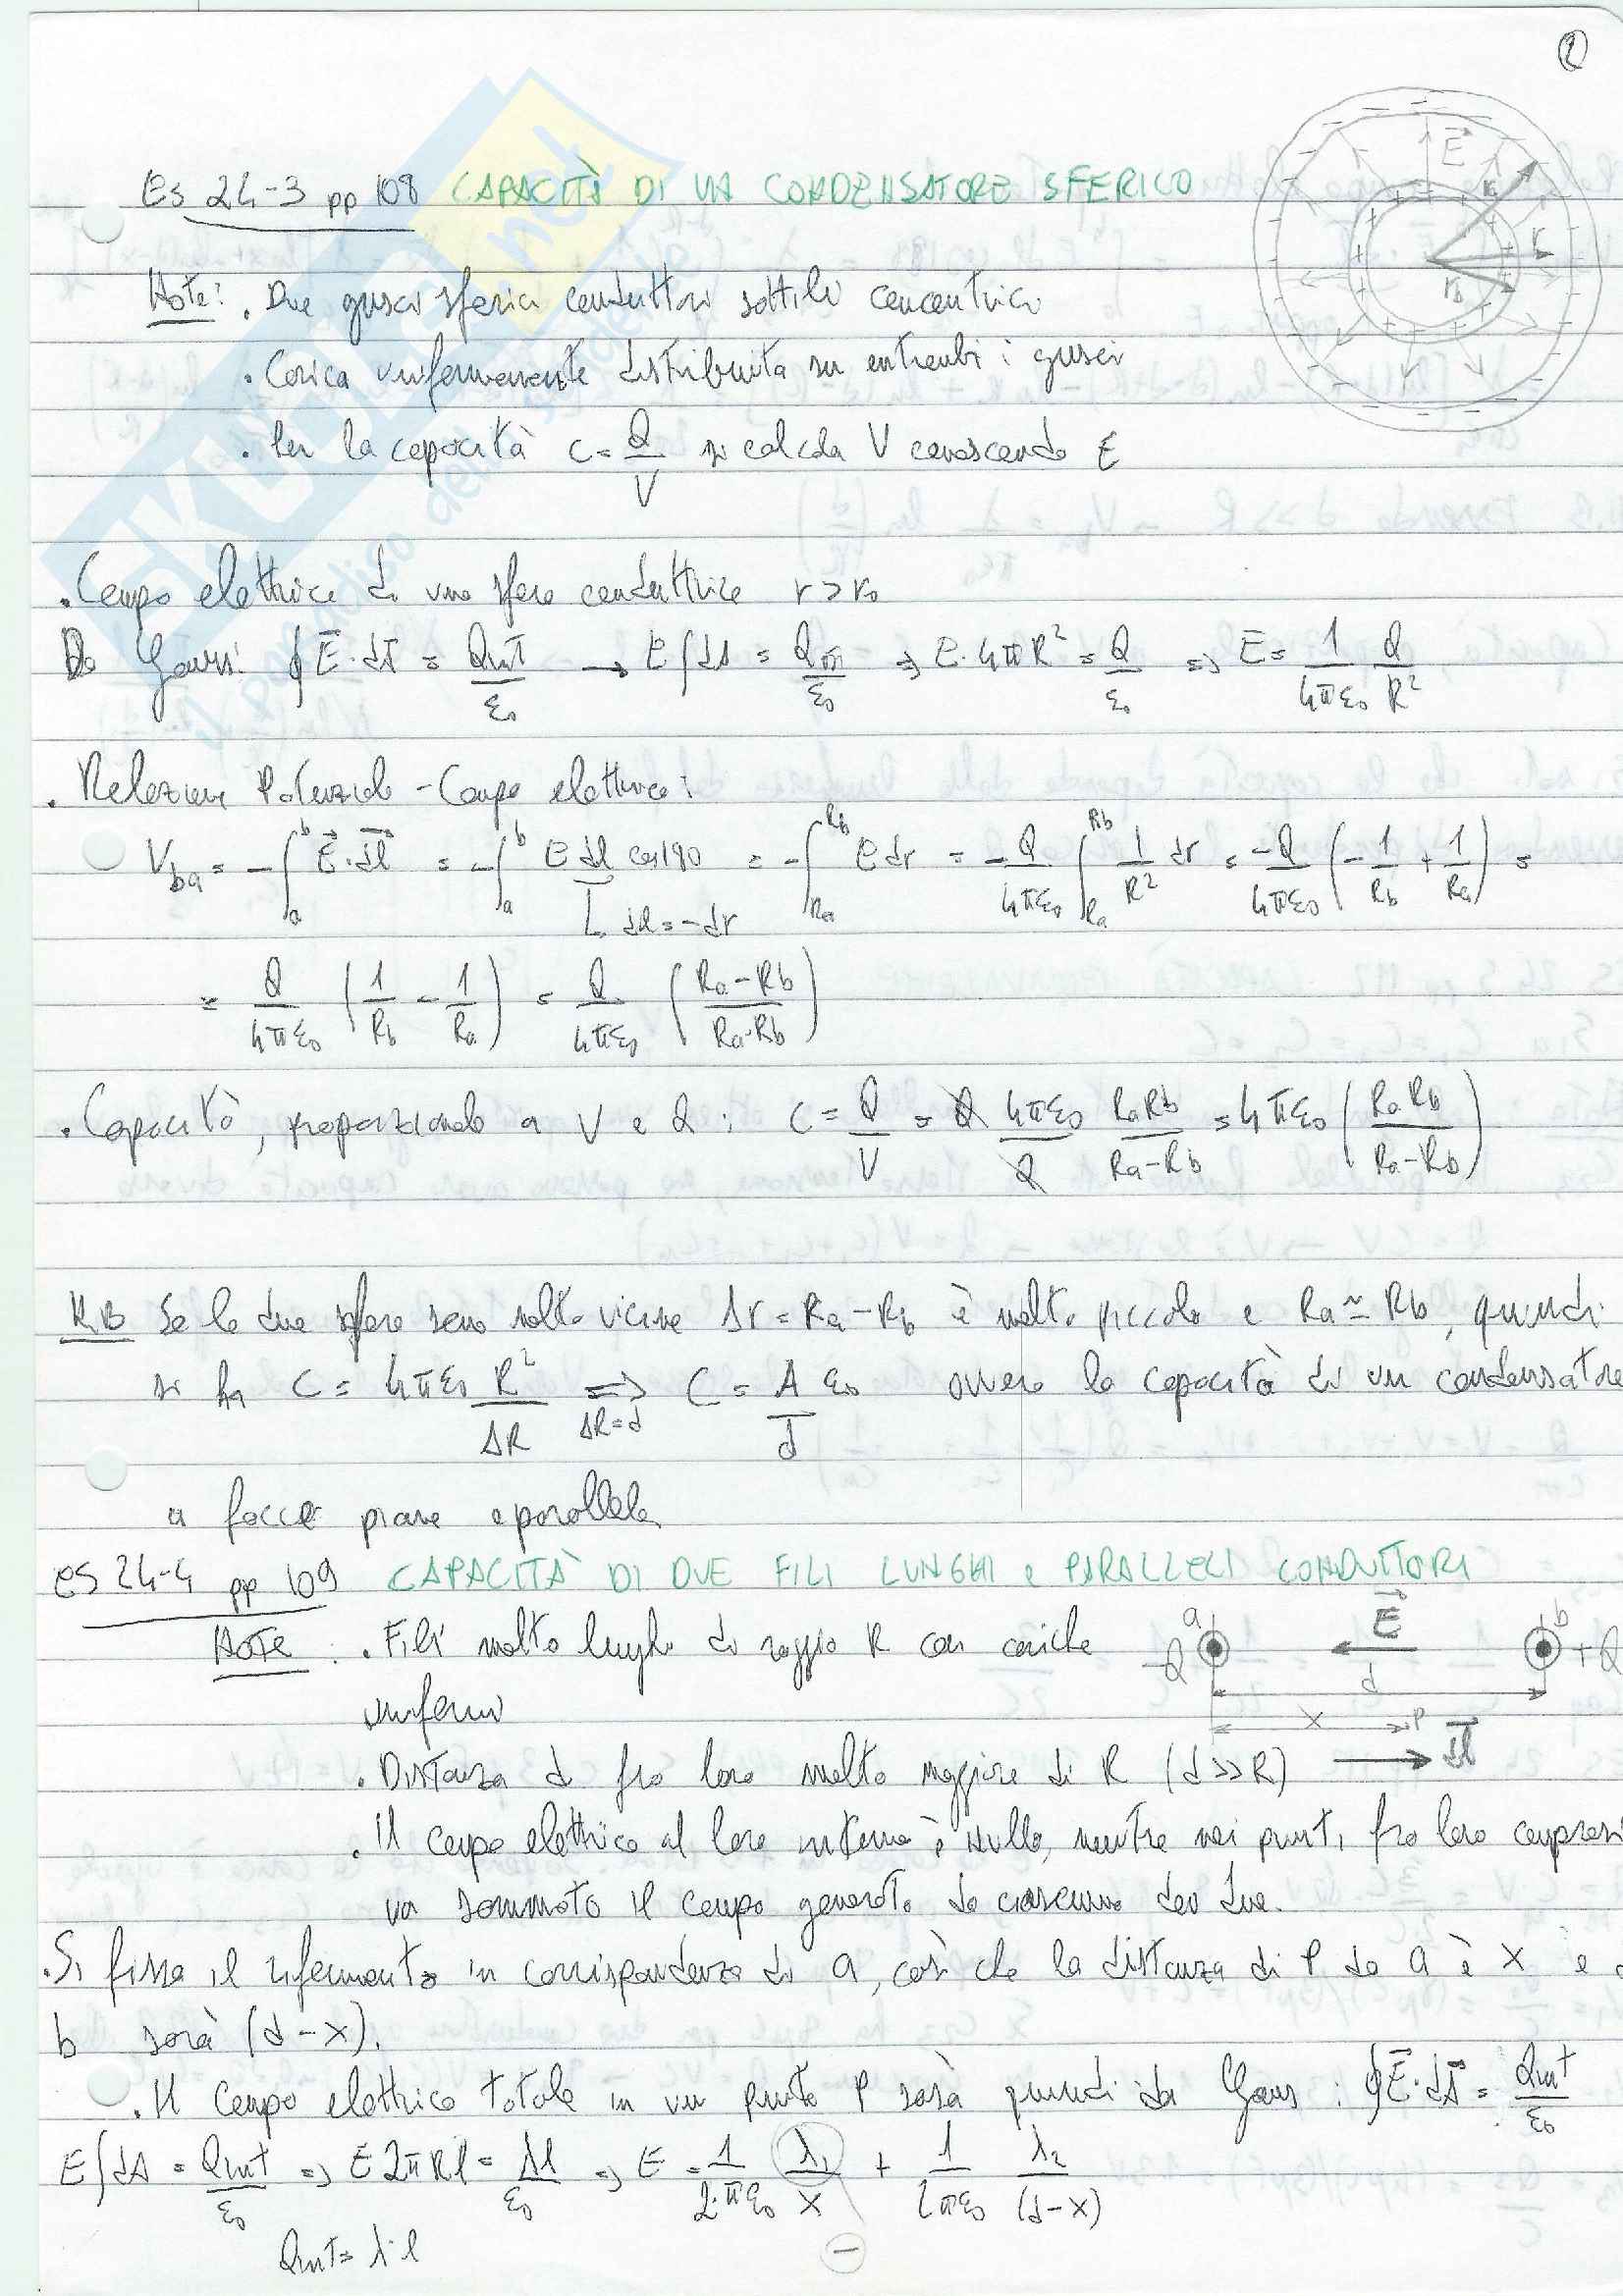 2
Es 24-3 pp 108 CAPACITÀ DI UN CONDENSATORE SFERICO
Note: . Due gusci sferici conduttori sottili concentrici
. Carica uniformemente distribuita su entrambi i gusci
. Per la capacità C = Q/V si calcola V conoscendo E
. Campo elettrico di una sfera conduttrice r > r₀
Da Gauss: ∮ E⃗·dA⃗ = Qint/ε₀ → E∫dA = Qin/ε₀ ⇒ E·4πR² = Q/ε₀ ⇒ E = 1/4πε₀ Q/R²
. Relazione Potenziale - Campo elettrico:
V_ba = -∫_a^b E⃗·dl⃗ = -∫_a^b E dl cos180 = -∫_Ra^Rb E dr = -Q/4πε₀ ∫_Ra^Rb 1/R² dr = -Q/4πε₀ (-1/Rb + 1/Ra) =
dl = -dr
= Q/4πε₀ (1/Rb - 1/Ra) = Q/4πε₀ (Ra-Rb/Ra·Rb)
. Capacità, proporzionale a V e Q: C = Q/V = Q 4πε₀/Q RaRb/Ra-Rb = 4πε₀ (RaRb/Ra-Rb)
N.B Se le due sfere sono molto vicine Δr = Ra-Rb è molto piccolo e Ra ≃ Rb, quindi
si ha C = 4πε₀ R²/ΔR ⇒ ΔR=d C = A/d ε₀ ovvero la capacità di un condensatore
a facce piane e parallele
ES 24-4 pp 109 CAPACITÀ DI DUE FILI LUNGHI e PARALLELI CONDUTTORI
NOTE: . Fili molto lunghi di raggio R con cariche
uniformi
. Distanza d fra loro molto maggiore di R (d>>R)
. Il campo elettrico al loro interno è nullo, mentre nei punti fra loro compresi
va sommato il campo generato da ciascuno dei due.
. Si fissa il riferimento in corrispondenza di a, così che la distanza di P da a è x e
b sarà (d-x).
. Il campo elettrico totale in un punto P sarà quindi da Gauss: ∮E⃗·dA⃗ = Qint/ε₀
E∫dA = Qint/ε₀ ⇒ E2πRl = λl/ε₀ ⇒ E = 1/2πε₀ λ₁/x + 1/2πε₀ λ₂/(d-x)
Qint = λ·l
E⃗
r
r_b
-Q a E⃗ b +Q
d
x P
dl⃗
1
SKUOLA.net
il paradiso dello studente